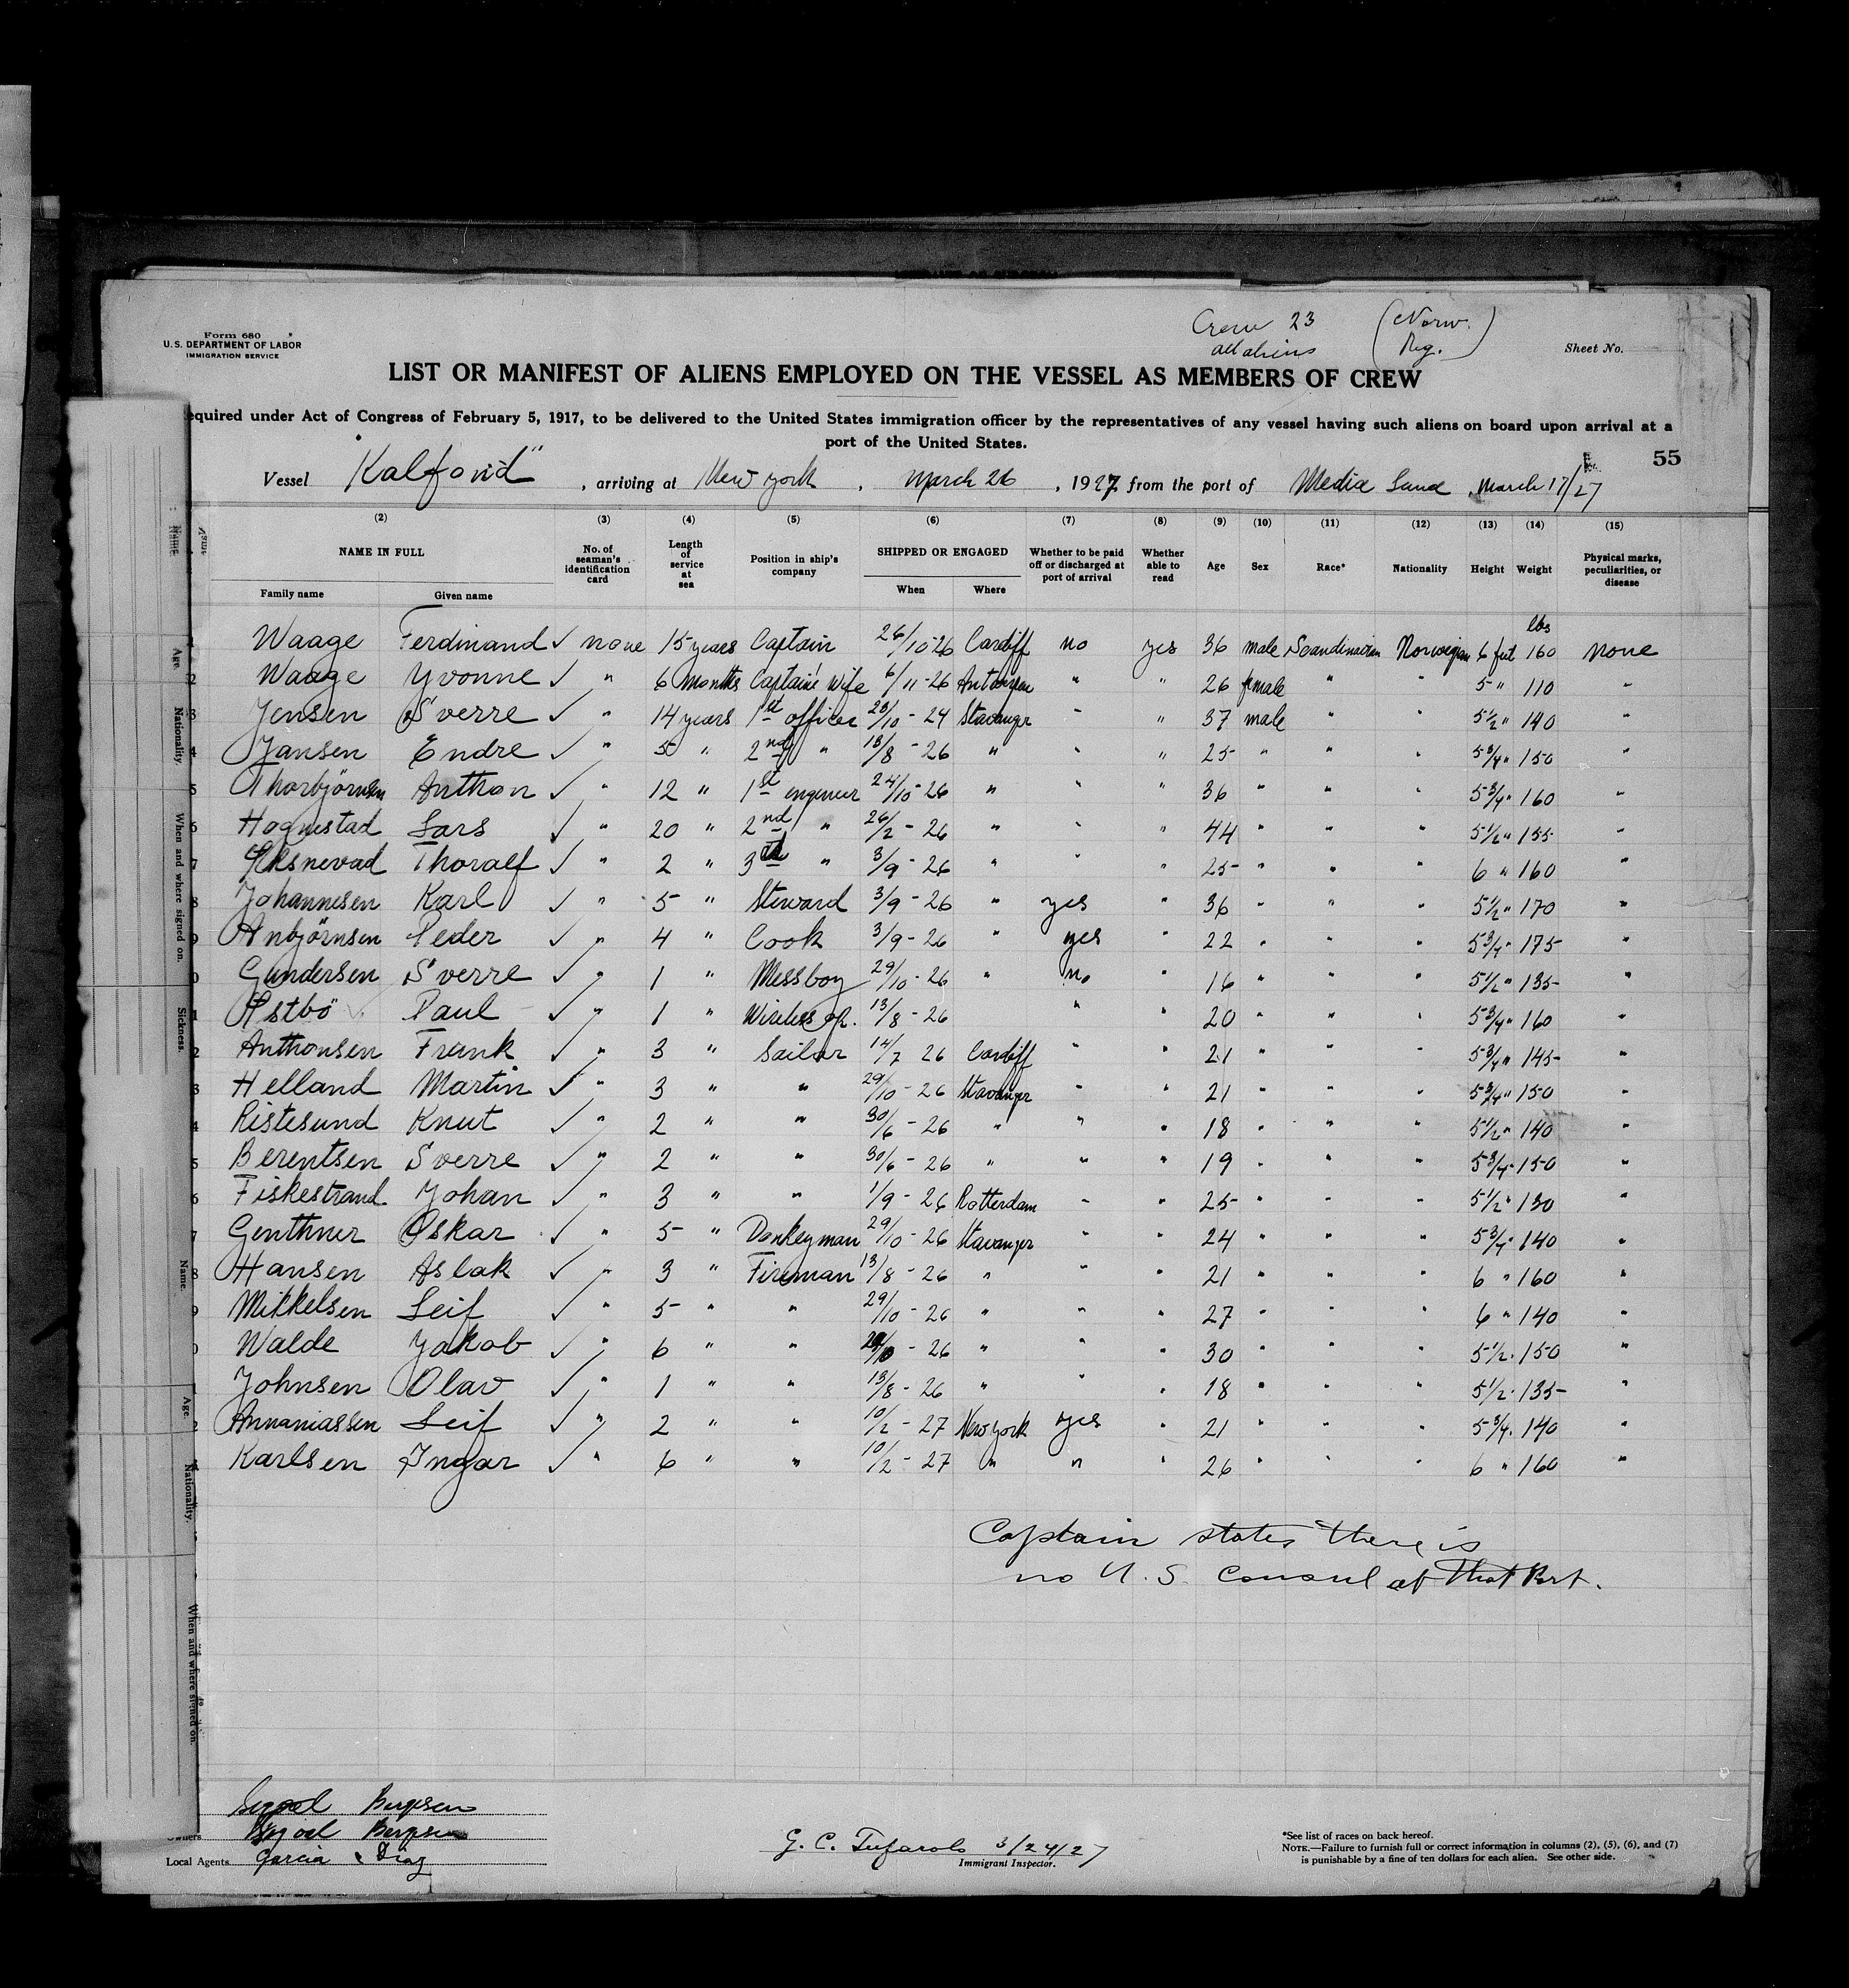 Form 680
U.S. DEPARTMENT OF LABOR
IMMIGRATION SERVICE
Crew 23 (Norw.
all aliens Reg.)
Sheet No.
LIST OR MANIFEST OF ALIENS EMPLOYED ON THE VESSEL AS MEMBERS OF CREW
equired under Act of Congress of February 5, 1917, to be delivered to the United States immigration officer by the representatives of any vessel having such aliens on board upon arrival at a
port of the United States.
55
Vessel "Kalfarid", arriving at New York, March 26, 1927, from the port of Media Luna, March 17/27
(2) (3) (4) (5) (6) (7) (8) (9) (10) (11) (12) (13) (14) (15)
NAME IN FULL No. of seaman's identification card Length of service at sea Position in ship's company SHIPPED OR ENGAGED Whether to be paid off or discharged at port of arrival Whether able to read Age Sex Race* Nationality Height Weight Physical marks, peculiarities, or disease
Family name Given name When Where
lbs
Waage Ferdinand ✓ none 15 years Captain 26/10-26 Cardiff no yes 36 male Scandinavian Norwegian 6 feet 160 none
2 Waage Yvonne ✓ " 6 months Captains Wife 6/11-26 Antwerpen " " 26 female " " 5 " 110 "
3 Jensen Sverre ✓ " 14 years 1st officer 28/10-24 Stavanger " " 37 male " " 5 1/2 " 140 "
4 Jansen Endre ✓ " 5 " 2nd " 13/8-26 " " " 25 " " " 5 3/4 " 150 "
5 Thorbjörnsen Anthon ✓ " 12 " 1st engineer 24/10-26 " " " 36 " " " 5 3/4 " 160 "
6 Hognestad Lars ✓ " 20 " 2nd " 26/2-26 " " " 44 " " " 5 1/2 " 155 "
7 Thoralf ✓ " 2 " 3rd " 3/9-26 " " " 25 " " " 6 " 160 "
8 Johannesen Karl ✓ " 5 " Steward 3/9-26 " yes " 36 " " " 5 1/2 " 170 "
9 Anbjörnsen Peder ✓ " 4 " Cook 3/9-26 " yes " 22 " " " 5 3/4 " 175 "
0 Gundersen Sverre ✓ " 1 " Messboy 29/10-26 " no " 16 " " " 5 1/2 " 135 "
1 Östbö Paul ✓ " 1 " Wireless op. 13/8-26 " " 20 " " " 5 3/4 " 160 "
2 Anthonsen Frank ✓ " 3 " Sailor 14/7 26 Cardiff " " 21 " " " 5 3/4 " 145 "
3 Helland Martin ✓ " 3 " " 29/10-26 Stavanger " " 21 " " " 5 3/4 " 150 "
4 Ristesund Knut ✓ " 2 " " 30/6-26 " " " 18 " " " 5 1/2 " 140 "
5 Berentsen Sverre ✓ " 2 " " 30/6-26 " " " 19 " " " 5 3/4 " 150 "
6 Fiskestrand Johan ✓ " 3 " " 1/9-26 Rotterdam " " 25 " " " 5 1/2 " 130 "
7 Genthner Oskar ✓ " 5 " Donkeyman 29/10-26 Stavanger " " 24 " " " 5 3/4 " 140 "
8 Hansen Aslak ✓ " 3 " Fireman 13/8-26 " " " 21 " " " 6 " 160 "
9 Mikkelsen Leif ✓ " 5 " " 29/10-26 " " " 27 " " " 6 " 140 "
0 Walde Jakob ✓ " 6 " " 29/10-26 " " " 30 " " " 5 1/2 " 150 "
1 Johnsen Olav ✓ " 1 " " 13/8-26 " " " 18 " " " 5 1/2 " 135 "
2 Annaniassen Leif ✓ " 2 " " 10/2-27 New York yes " 21 " " " 5 3/4 " 140 "
Karlsen Ingar ✓ " 6 " " 10/2-27 " " " 26 " " " 6 " 160 "
Captain states there is
no U.S. Consul at that Port.
Bergesen
Bergesen
Owners
Local Agents Garcia & Diaz
G. C. Tufarolo 3/24/27
Immigrant Inspector.
*See list of races on back hereof.
NOTE.—Failure to furnish full or correct information in columns (2), (5), (6), and (7)
is punishable by a fine of ten dollars for each alien. See other side.
Name.
Age.
Nationality.
When and where signed on.
Sickness.
Name.
Age.
Nationality.
When and where signed on.